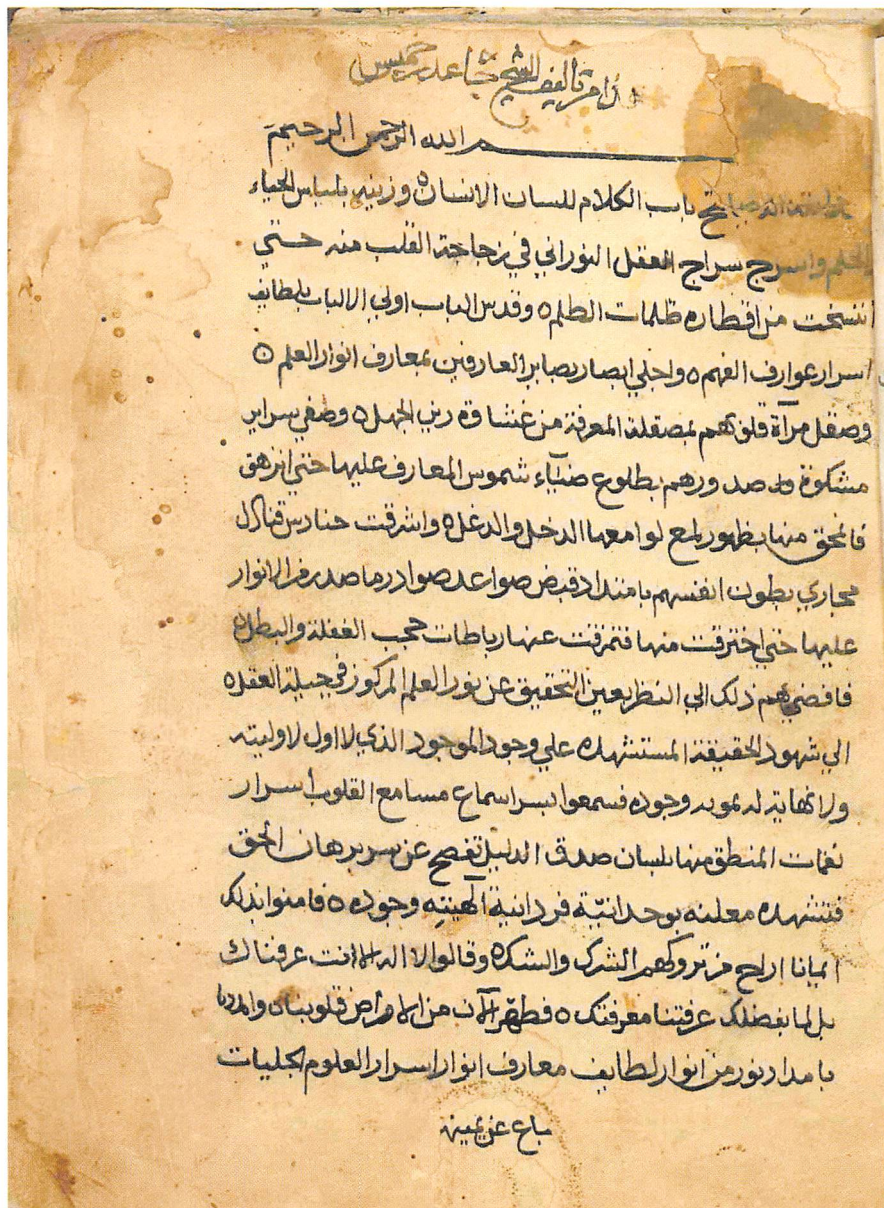 هذا من تأليف الشيخ جاعد بن خميس
بسم الله الرحمن الرحيم
باب الكلام للسان الانسان ه وزينه بلباس الحياء
والحلم واسرج سراج العقل النوراني في زجاجة القلب منه حتي
انتسخت من اقطاره ظلمات الظلم ه وقدس الباب اولي الالباب بلطايف
اسرار عوارف الفهم ه واجلي ابصار بصاير العارفين بمعارف انوار العلم ه
وصقل مرآة قلوبهم بمصقلة المعرفة من غشاوة رين الجهل ه وصفي سراير
مشكوة صدورهم بطلوع ضيآء شموس المعارف عليها حتي انزهق
فانمحق منها بظهور لمع لوامعها الدخل والدغل ه واشرقت حنادس
مجاري بطون انفسهم بامتداد قبض صواعد صوادر ما صدر من الانوار
عليها حتي اخترقت منها فتمزقت عنها رباطات حجب الغفلة والبطل ه
فافضي بهم ذلك الي النظر بعين التحقيق عن نور العلم المركوز في جبلة العقل ه
الي شهود الحقيقة المستشهده علي وجود الموجود الذي لا اول لاوليته
ولا نهاية لديمومة وجوده فسمعوا بسر اسماع مسامع القلوب اسرار
نغمات المنطق منها بلسان صدق الدليل تفصح عن سر برهان الحق
فتشهده معلنه بوحدانيّة فردانية الهيته وجوده ه فامنوا بذلك
ايمانا ازاح من تروكهم الشرك والشك ه وقالوا لا اله الا انت عرفناك
بل لما بفضلك عرفتنا معرفتك ه فطهّر الآن من الامراض قلوبنا ه وامددنا
بامداد نور من انوار لطايف معارف انوار اسرار العلوم الجليات
باع عن يمينه